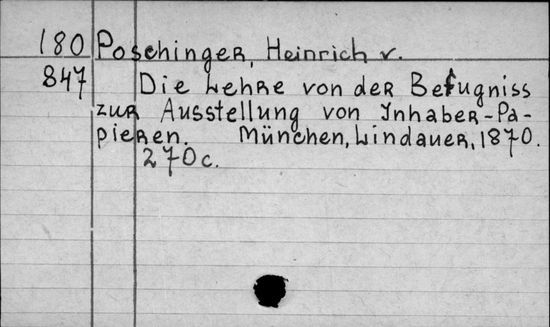 180 Poschinger, Heinrich v.
847 Die Lehre von der Befugniss
zur Ausstellung von Inhaber-Pa-
pieren. München, Lindauer, 1870.
270 c.